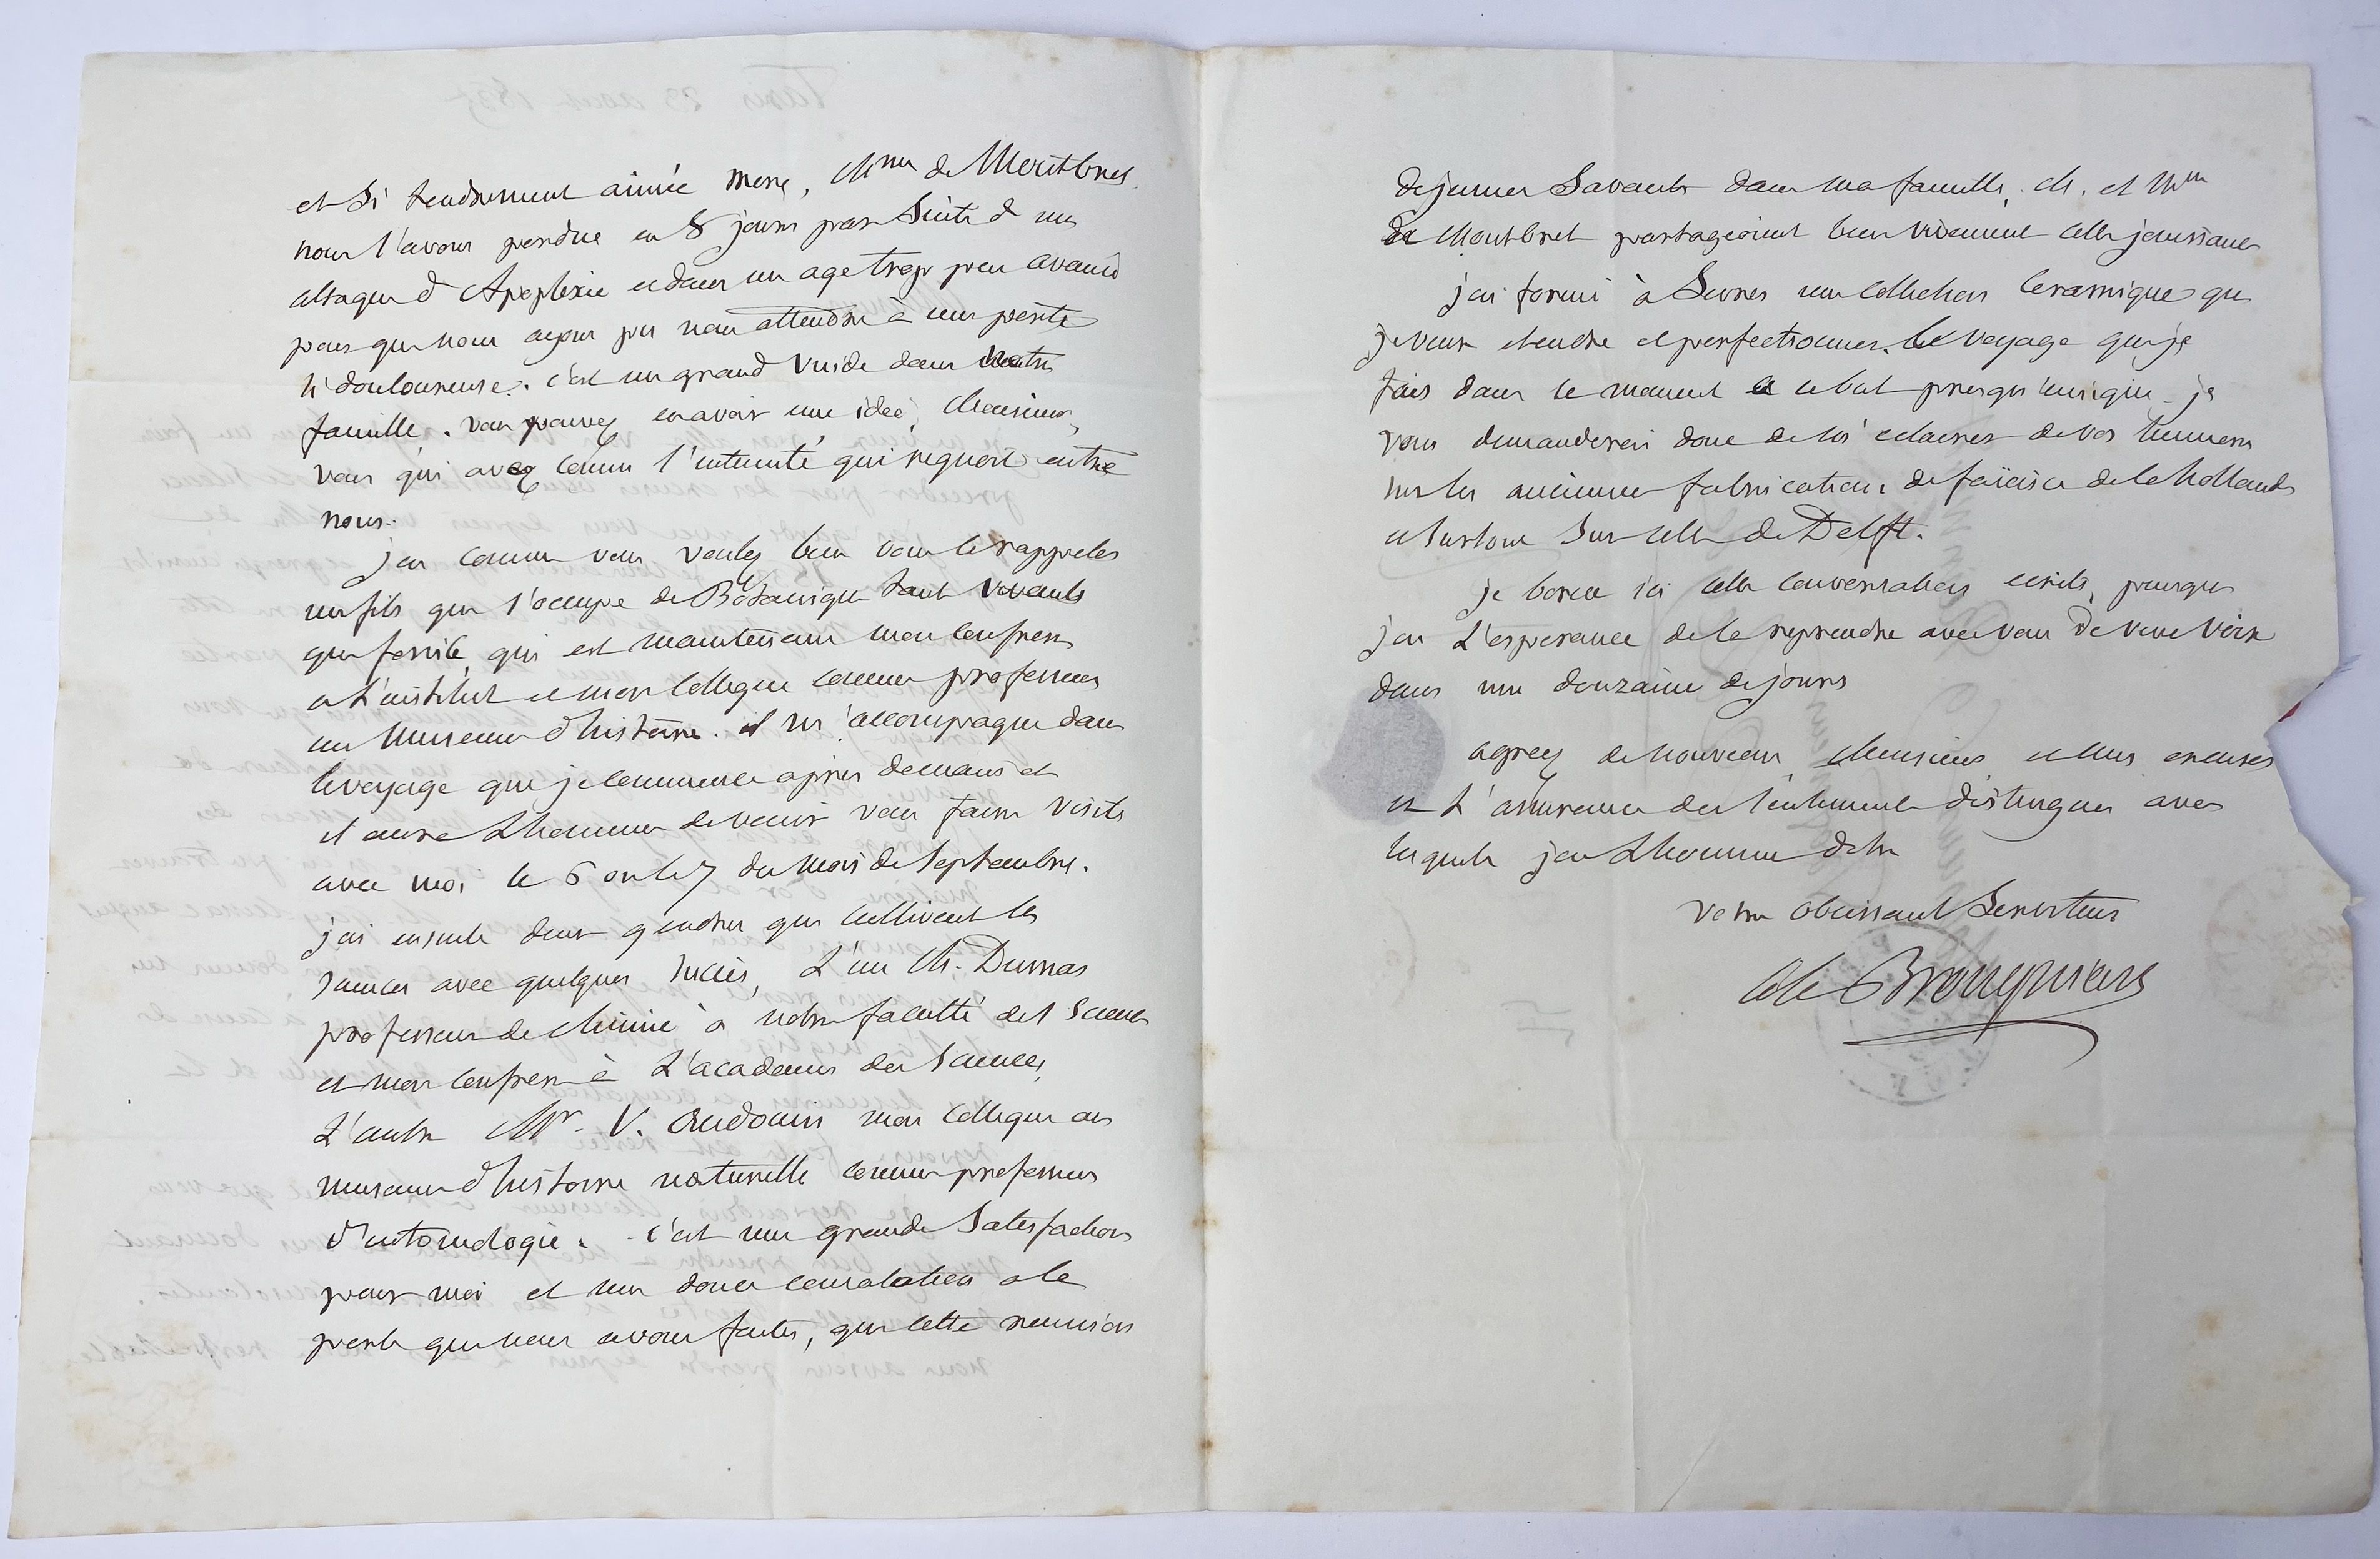 et si tendrement aimée mere, Mme de Montbret
nous l'avons perdue en 8 jours par suite d une
attaque d Apoplexie et dans un age trop peu avancé
pour que nous ayons pu nous attendre à une perte
si douloureuse. c'est un grand vuide dans notre
famille. vous pouvez en avoir une idée, Monsieur,
vous qui avez connu l'intimité qui regnoit entre
nous.
j'ai comme vous voulez bien vous le rappeler
un fils qui s'occupe de Botanique tant vivante
que fossile, qui est maintenant mon confrere
a L'institut et mon collegue comme professeur
au Museum d'histoire. il m'accompagne dans
le voyage que je commence après demain et
il aura Lhonneur de venir vous faire visite
avec moi le 6 ou le 7 du mois de septembre.
j'ai ensuite deux gendres qui cultivent les
sciences avec quelques succès, L'un M. Dumas
professeur de chimie à notre faculté des sciences
et mon confrere à L'academie des sciences,
L'autre Mr. V. Audouin mon collegue au
museum d'histoire naturelle comme professeur
d'entomologie. c'est une grande satisfaction
pour moi et une douce consolation a la
perte que nous avons faites, que cette reunion
de jeunes savants dans ma famille. M. et Mme
de Montbret partageoient bien vivement cette jouissance
j'ai formé à Sevres une collection ceramique que
je veux etendre et perfectionner. le voyage que je
fais dans ce moment a ce but presqu'unique. je
vous demanderai donc de m'eclairer de vos lumieres
sur les anciennes fabrications de faïence de la hollande
et surtout sur celle de Delft.
je borne ici cette conversation ecrite, puisque
j'ai L'esperance de la reprendre avec vous de vive voix
dans une douzaine de jours
agreez de nouveau Monsieur et mes excuses
et L'assurance des sentiments distingués avec
lesquels j'ai Lhonneur d'etre
votre obeissant serviteur
Alex Brongniart